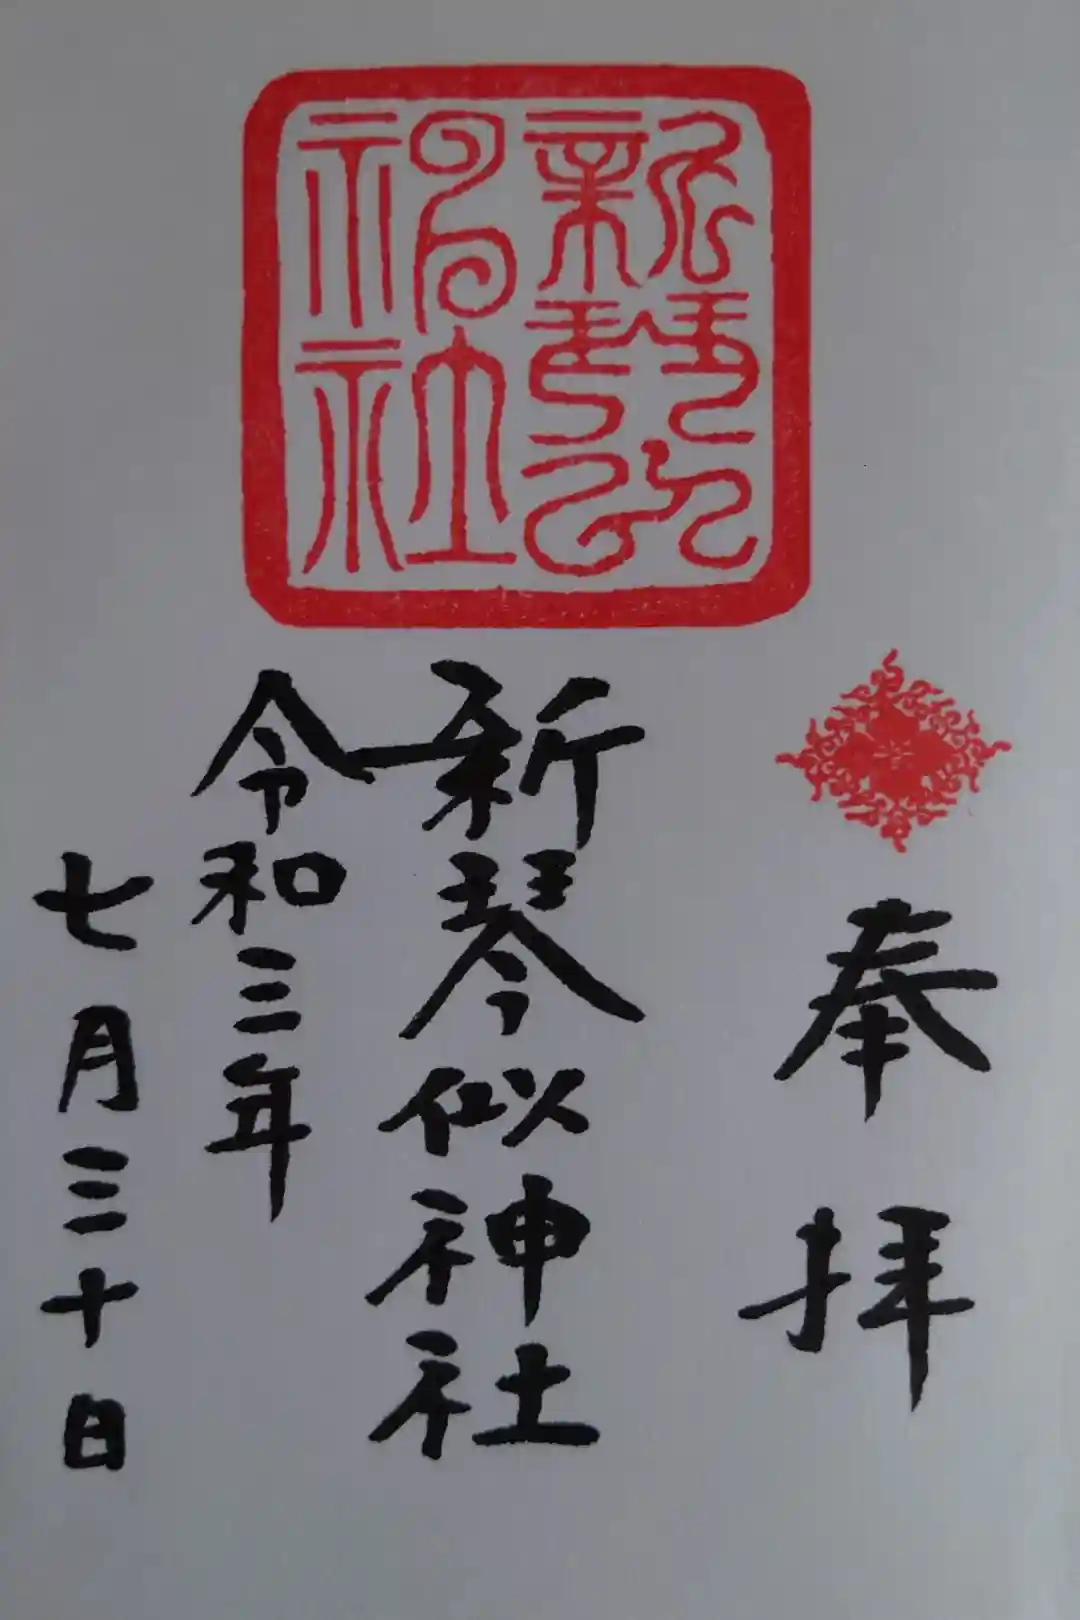 新琴似
神社
奉拝
新琴似神社
令和三年
七月三十日